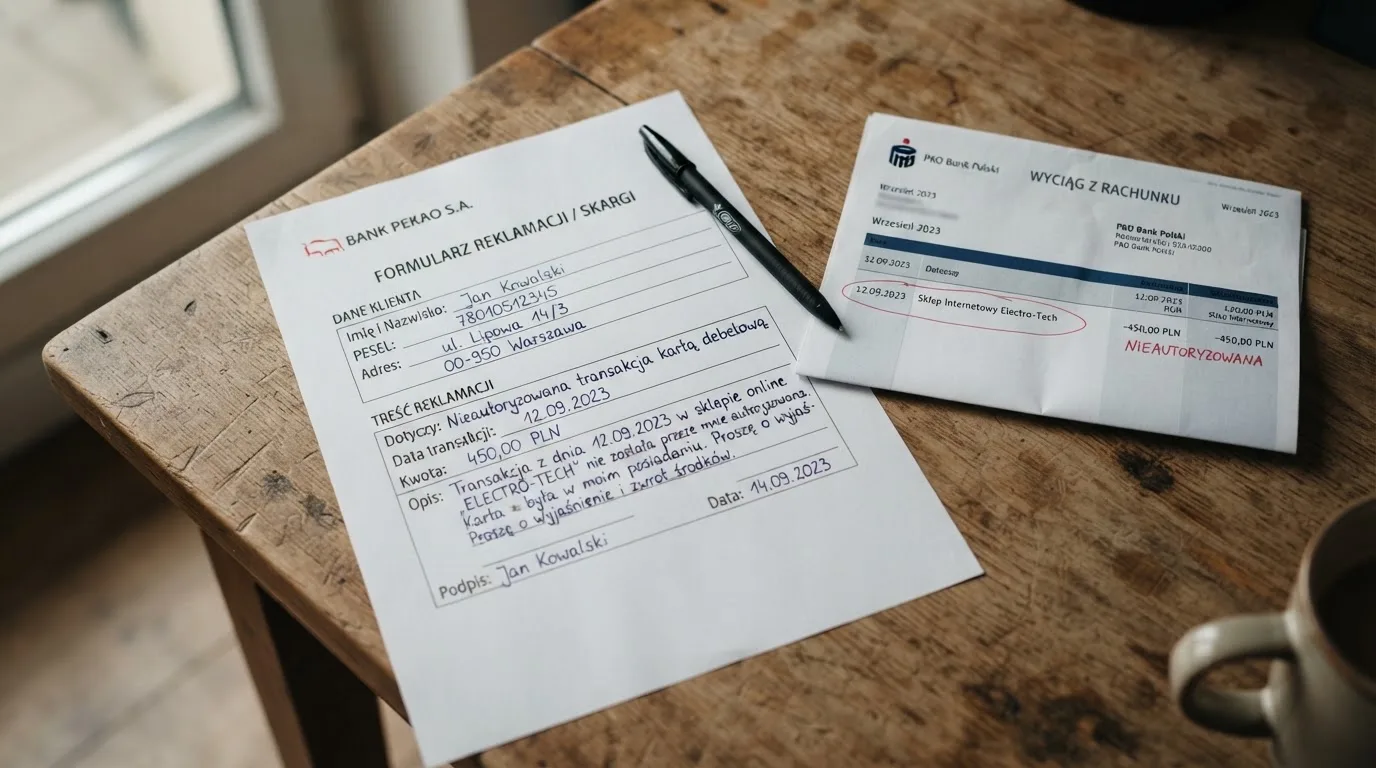 BANK PEKAO S.A.
FORMULARZ REKLAMACJI / SKARGI
DANE KLIENTA
Imię i Nazwisko: Jan Kowalski
PESEL: 78010512345
Adres: ul. Lipowa 14/3
00-950 Warszawa
TREŚĆ REKLAMACJI
Dotyczy: Nieautoryzowana transakcja kartą debetową
Data transakcji: 12.09.2023
Kwota: 450,00 PLN
Opis: Transakcja z dnia 12.09.2023 w sklepie online
„ELECTRO-TECH" nie została przeze mnie
Karta była w moim posiadaniu. Proszę o wyjaś-
Proszę o wyjaśnienie i zwrot środków.
Data: 14.09.2023
Podpis: Jan Kowalski
PKO Bank Polski
WYCIĄG Z RACHUNKU
Wrzesień 2023
Wrzesień 2023
Wrzesień 2023
PKO Bank Polski
PKO Bank Polski
12.09.2023
12.09.2023 Sklep Internetowy Electro-Tech
-450,00 PLN -450,00 PLN
NIEAUTORYZOWANA